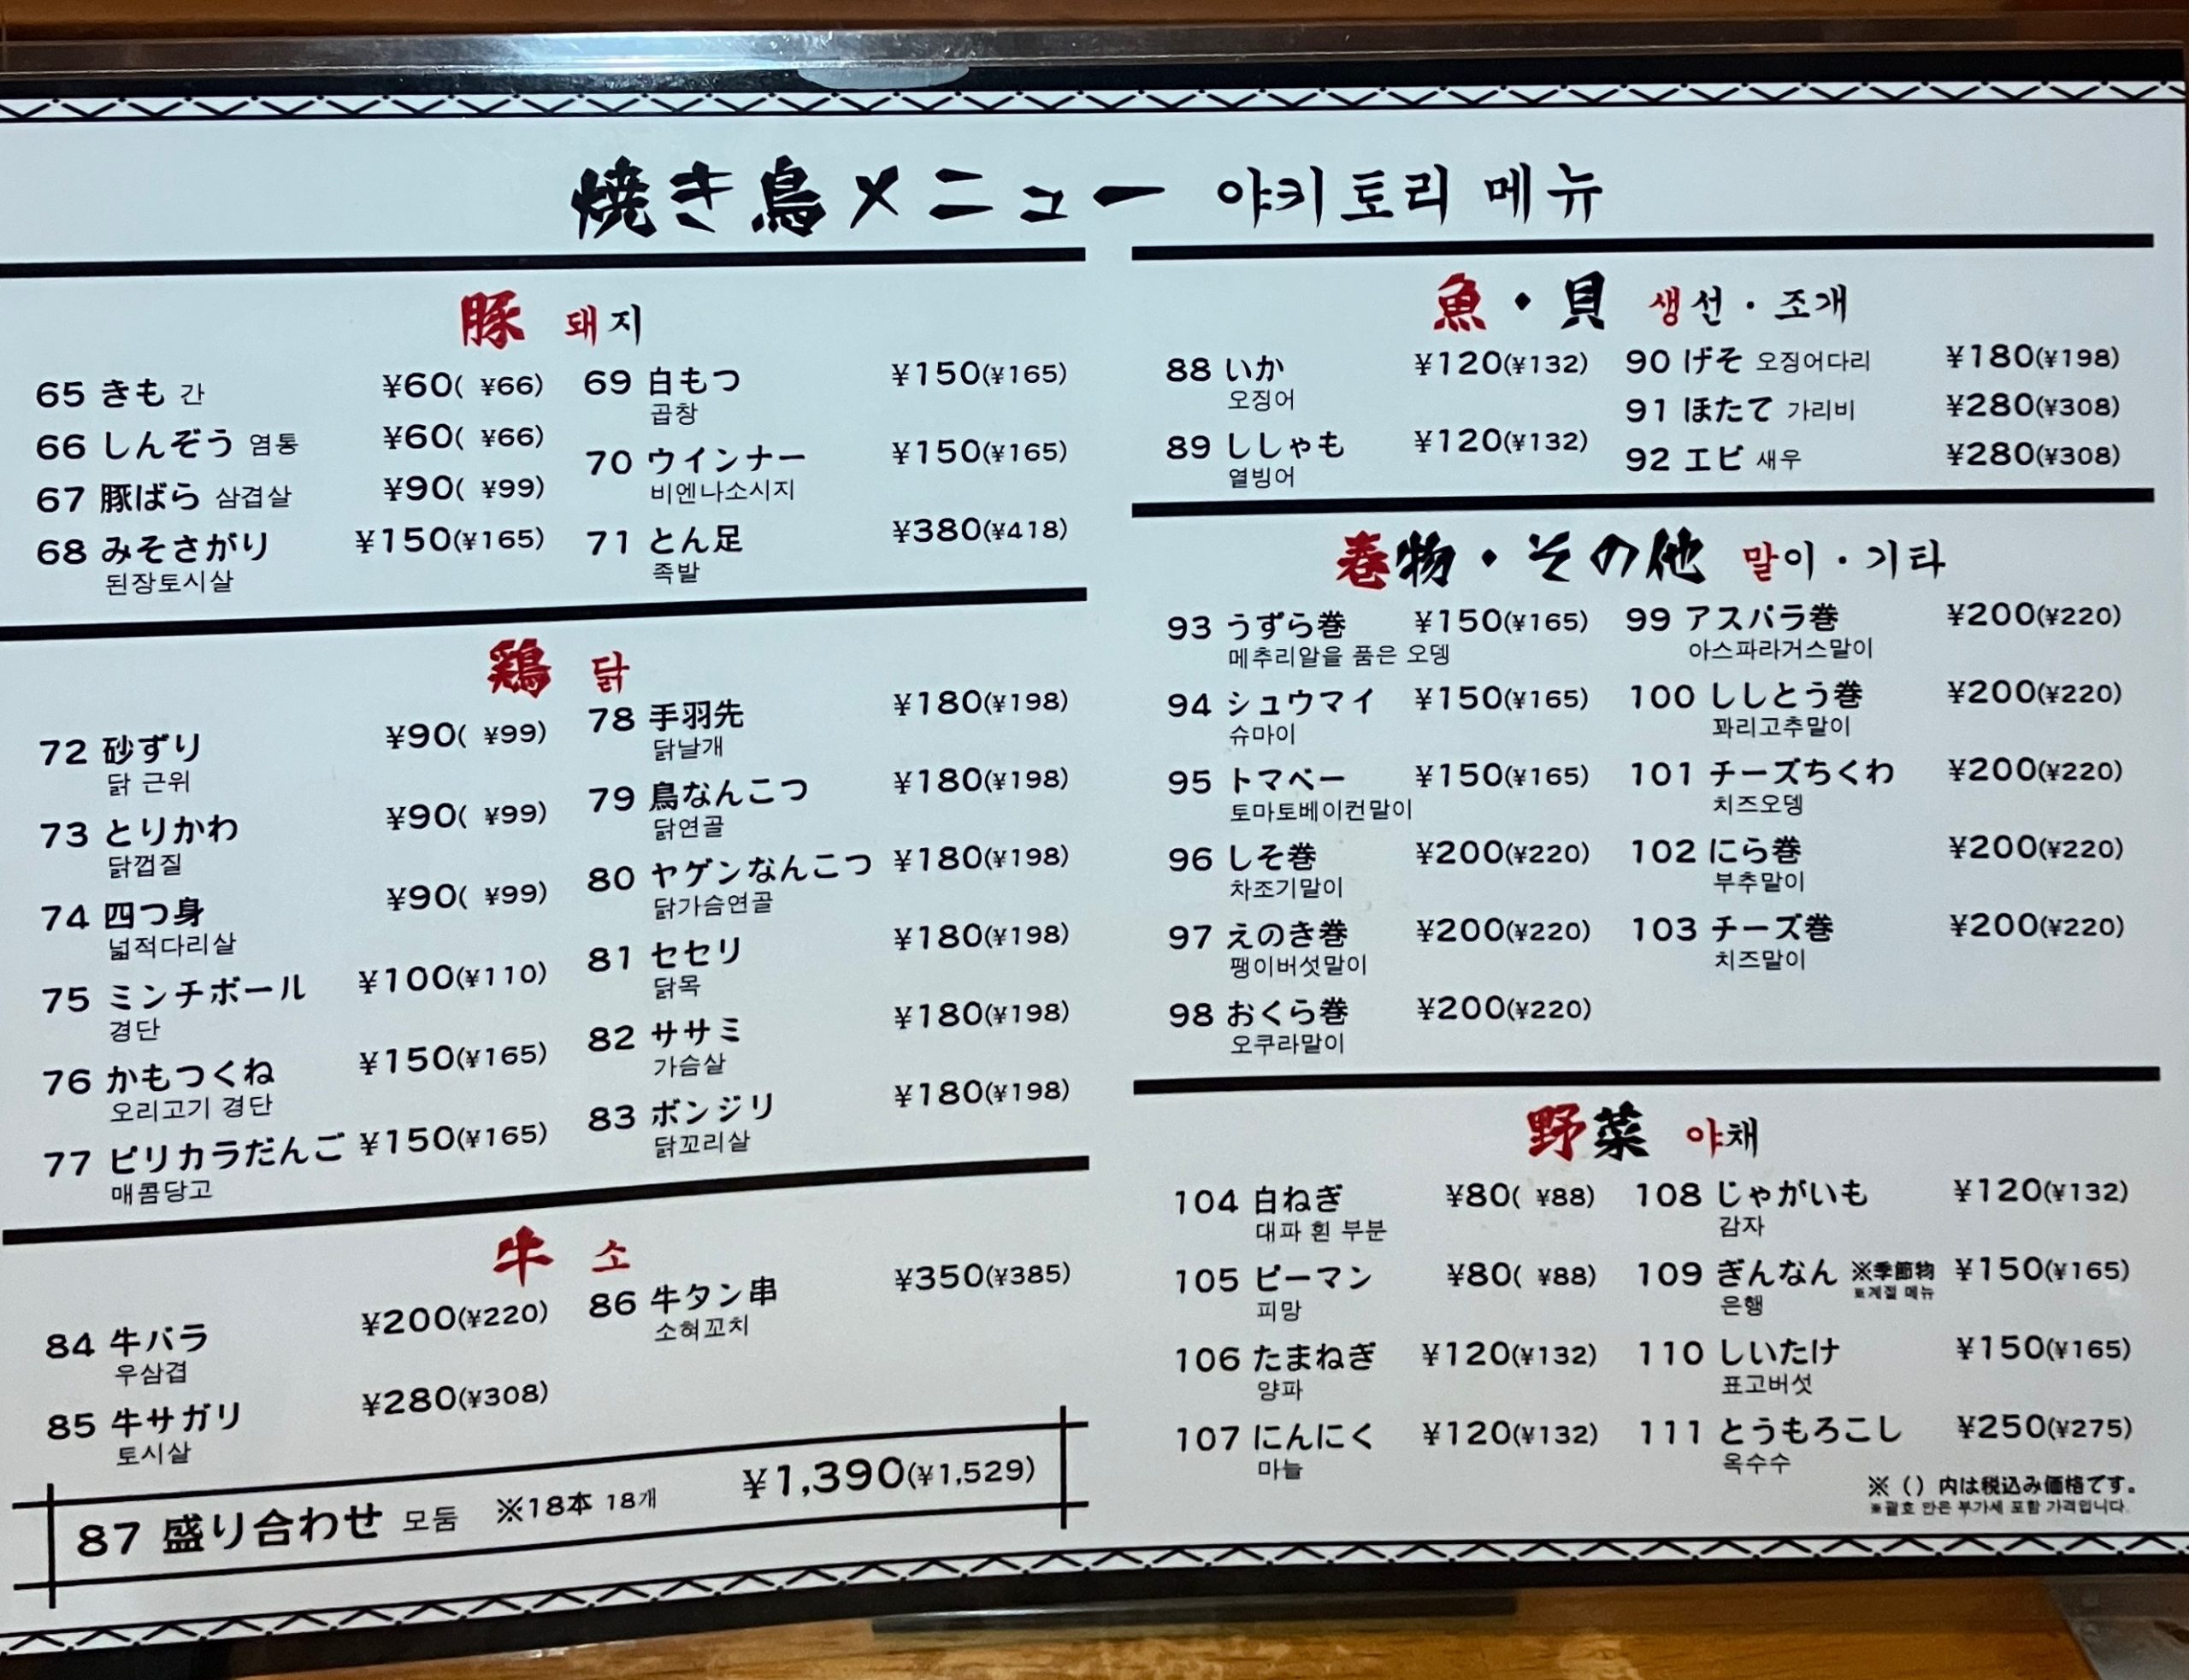 焼き鳥メニュー 야키토리 메뉴
豚 돼지
65 きも 간 ¥60( ¥66)
66 しんぞう 염통 ¥60( ¥66)
67 豚ばら 삼겹살 ¥90( ¥99)
68 みそさがり ¥150(¥165)
된장토시살
69 白もつ ¥150(¥165)
곱창
70 ウインナー ¥150(¥165)
비엔나소시지
71 とん足 ¥380(¥418)
족발
鶏 닭
72 砂ずり ¥90( ¥99)
닭 근위
73 とりかわ ¥90( ¥99)
닭껍질
74 四つ身 ¥90( ¥99)
넓적다리살
75 ミンチボール ¥100(¥110)
경단
76 かもつくね ¥150(¥165)
오리고기 경단
77 ピリカラだんご ¥150(¥165)
매콤당고
78 手羽先 ¥180(¥198)
닭날개
79 鳥なんこつ ¥180(¥198)
닭연골
80 ヤゲンなんこつ ¥180(¥198)
닭가슴연골
81 セセリ ¥180(¥198)
닭목
82 ササミ ¥180(¥198)
가슴살
83 ボンジリ ¥180(¥198)
닭꼬리살
牛 소
84 牛バラ ¥200(¥220)
우삼겹
85 牛サガリ ¥280(¥308)
토시살
86 牛タン串 ¥350(¥385)
소혀꼬치
87 盛り合わせ 모둠 ※18本 18개 ¥1,390(¥1,529)
魚・貝 생선・조개
88 いか ¥120(¥132)
오징어
89 ししゃも ¥120(¥132)
열빙어
90 げそ 오징어다리 ¥180(¥198)
91 ほたて 가리비 ¥280(¥308)
92 エビ 새우 ¥280(¥308)
巻物・その他 말이・기타
93 うずら巻 ¥150(¥165)
메추리알을 품은 오뎅
94 シュウマイ ¥150(¥165)
슈마이
95 トマベー ¥150(¥165)
토마토베이컨말이
96 しそ巻 ¥200(¥220)
차조기말이
97 えのき巻 ¥200(¥220)
팽이버섯말이
98 おくら巻 ¥200(¥220)
오쿠라말이
99 アスパラ巻 ¥200(¥220)
아스파라거스말이
100 ししとう巻 ¥200(¥220)
꽈리고추말이
101 チーズちくわ ¥200(¥220)
치즈오뎅
102 にら巻 ¥200(¥220)
부추말이
103 チーズ巻 ¥200(¥220)
치즈말이
野菜 야채
104 白ねぎ ¥80( ¥88)
대파 흰 부분
105 ピーマン ¥80( ¥88)
피망
106 たまねぎ ¥120(¥132)
양파
107 にんにく ¥120(¥132)
마늘
108 じゃがいも ¥120(¥132)
감자
109 ぎんなん ※季節物 ¥150(¥165)
은행 ※계절 메뉴
110 しいたけ ¥150(¥165)
표고버섯
111 とうもろこし ¥250(¥275)
옥수수
※（）内は税込み価格です。
※괄호 안은 부가세 포함 가격입니다.